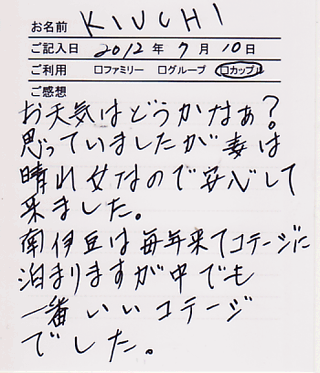 お名前 KIUCHI
ご記入日 2012年 7月 10日
ご利用 □ファミリー □グループ □カップル
ご感想
お天気はどうかなぁ?
思っていましたが妻は
晴れ女なので安心して
来ました。
南伊豆は毎年来てコテージに
泊まりますが中でも
一番いいコテージ
でした。